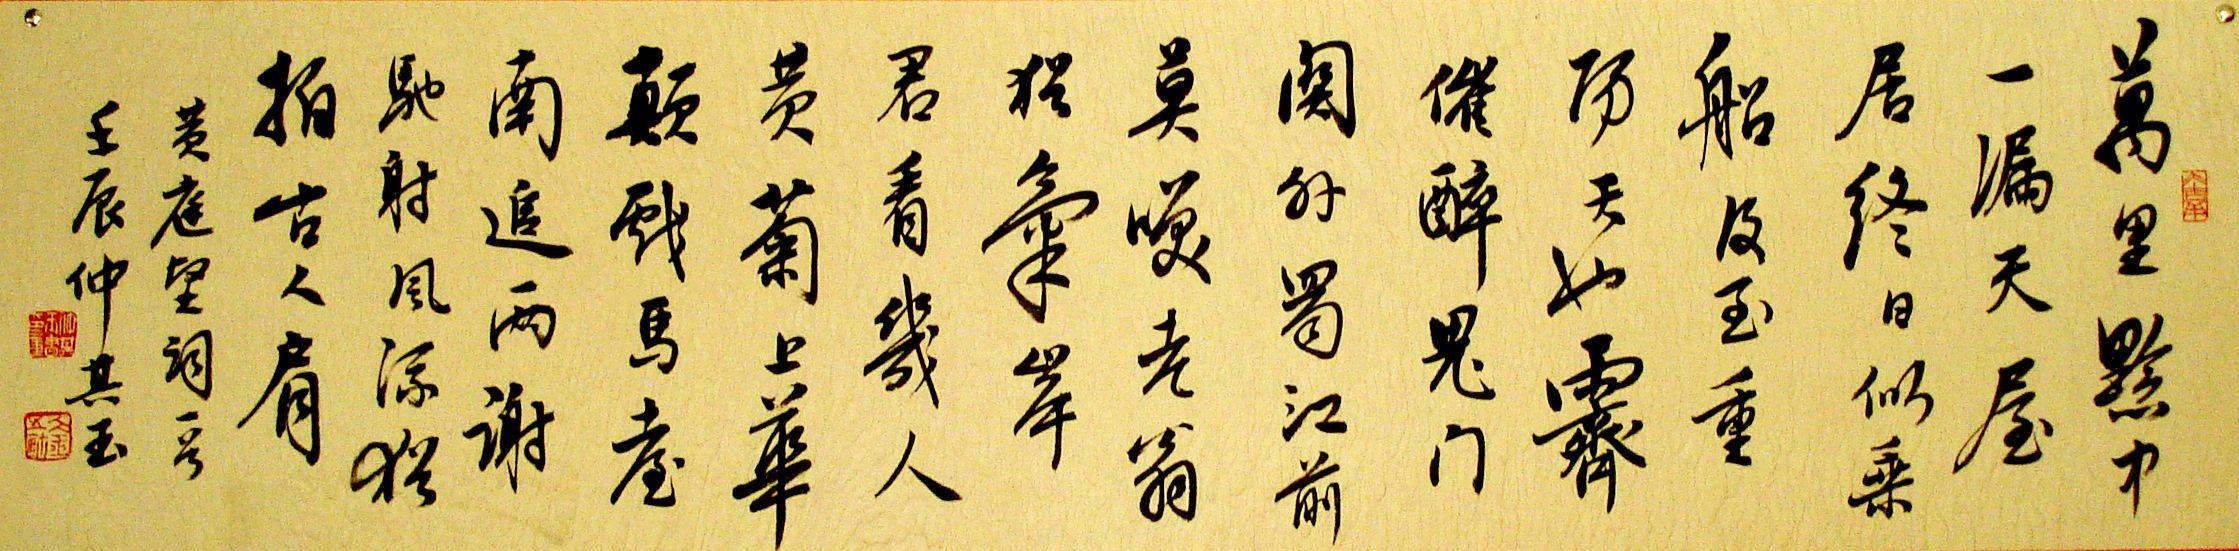 萬里黔中
一漏天屋
居終日似乘
船及至重
陽天也霽
催醉鬼门
関外蜀江前
莫咲老翁
猶氣岸
君看幾人
黄菊上華
顛戲馬臺
南追两謝
馳射風流猶
拍古人肩
黄庭堅詞一首
壬辰仲其玉